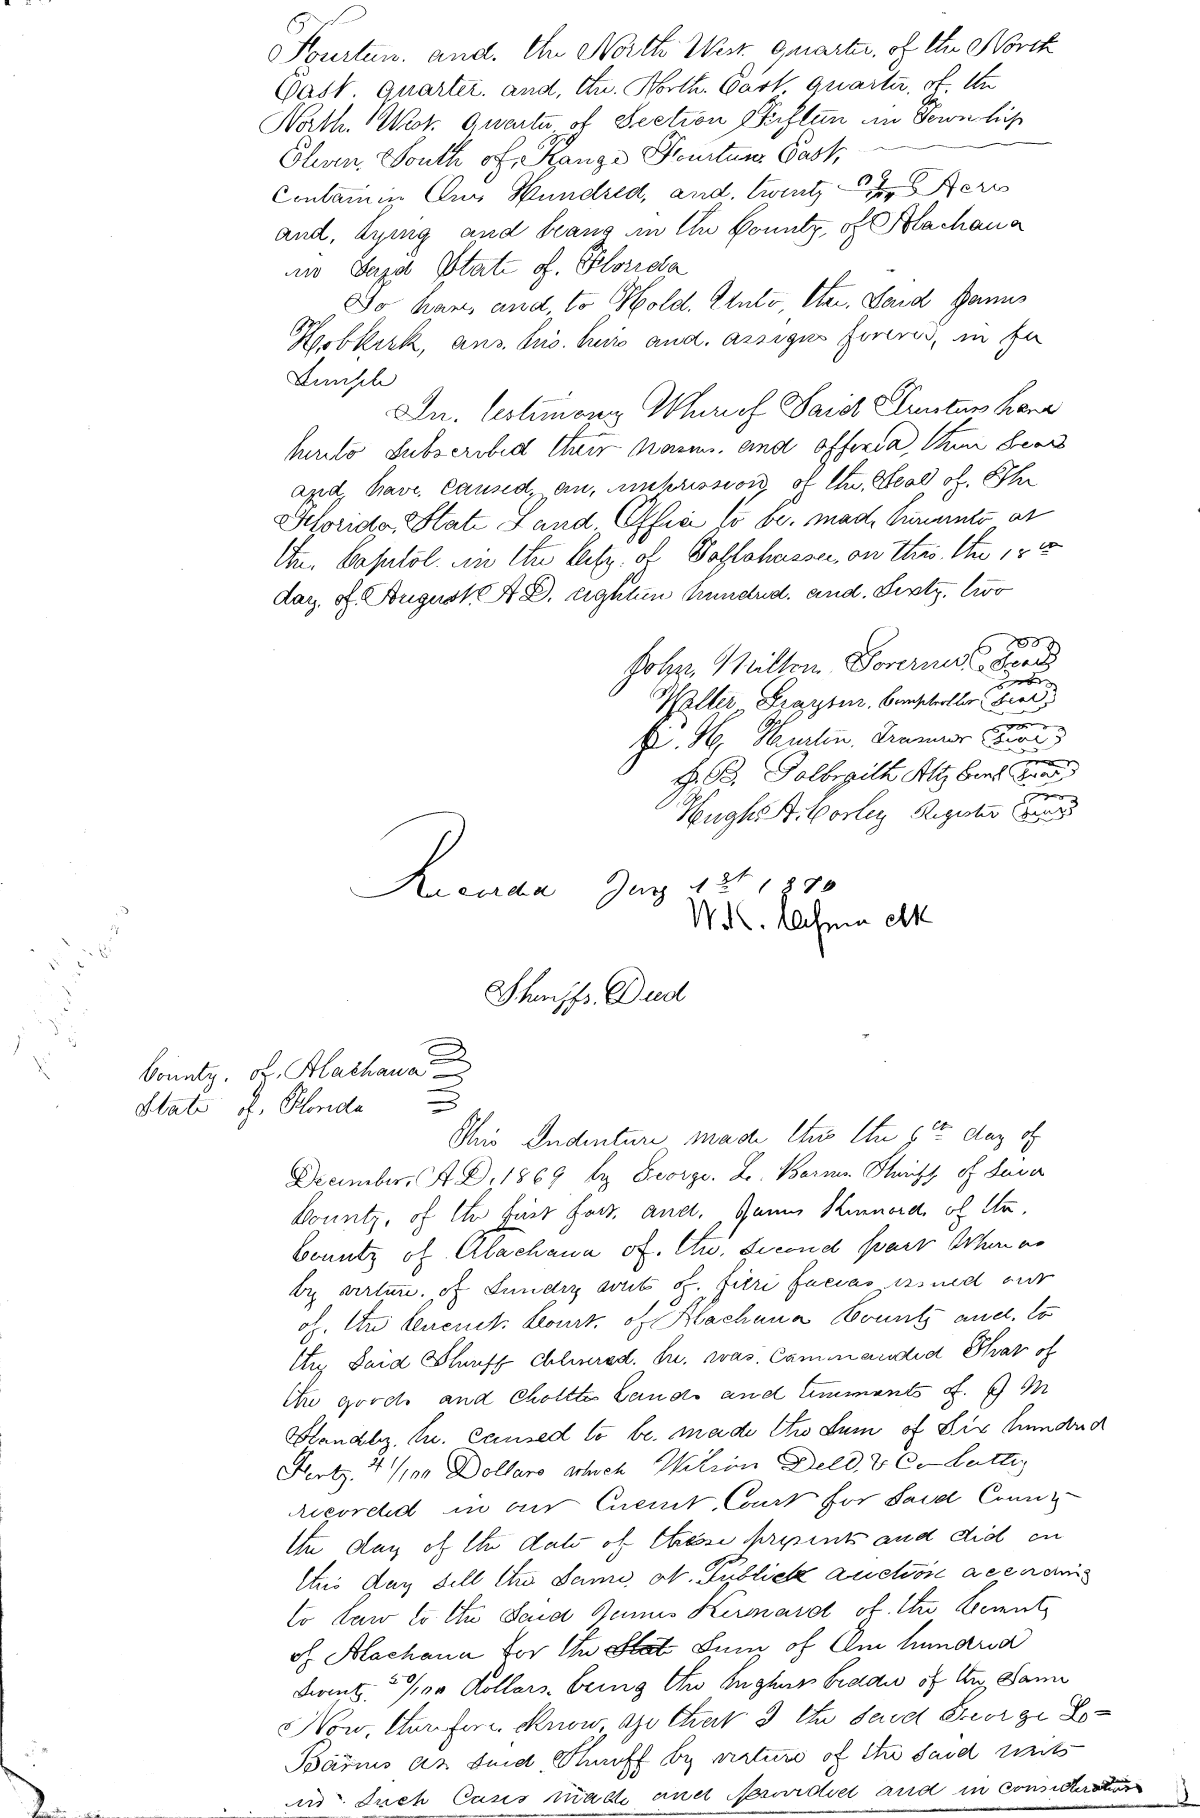 Fourteen. and. the North West quarter. of the North
East. quarter. and, the. North. East. quarter. of. the
North. West. quarter, of Section Fifteen in Township
Eleven. South of, Range Fourteen East,
Containin One Hundred, and. twenty Acres
and, lying and beang in the County, of Alachaua
in Said State of. Florida
To have, and, to Hold. Unto, the. Said James
Hobkirk, ans. his. heirs and. assigns forever, in fee
Simple
In. testimony Whereof Said Trustees have
hereto subscribed their names. and affixed, their Seals
and, have. caused, an, impression, of the. Seal of. The
Florida, State Land. Office to be. made hereunto at
the. Capitol. in the City. of Tallahassee, on this. the 18th
day. of. August. A D. eighteen hundred. and. Sixty. two
John, Milton. Governer. Seal
Walter Comptroller Seal
H, Treasurer Seal
J. B. Galbraith Atty Genl Seal
Hugh. A. Corley Register Seal
Recorded Jany 1st 1870
W.K. Clk
Sheriffs. Deed
County. of. Alachaua
State of. Florida
This Indenture made this the 6th day of
December, A D, 1869 by George. L. Barnes Sheriff of Said
County, of the first part. and. James Kennard. of the.
County of Alachaua of. the. second part Whereas
by verture. of Sundry writs of. fieri facias issued out
of. the Circuit. Court. of Alachaua County and. to
the Said Sheriff delivered. he. was. Commanded That of
the goods and Chattles Lands and tenements of. J M
Standley. he. caused to be. made the Sum of Six hundred
Forty. 41/100 Dollars which Wilson Dell. & Co
recorded in our Circuit. Court for Said County
the day of the date of these presents and did on
this day sell the Same. at. Publick auction according
to law to the Said James Kennard of. the County
of Alachaua for the Stat Sum of One hundred
Twenty. 50/100 dollars. being the highest bidder of the Same
Now, therefore. know, ye that I the said George L=
Barnes as said. Sheriff by verture of the said writs
in Such Cases made and provided and in consideration